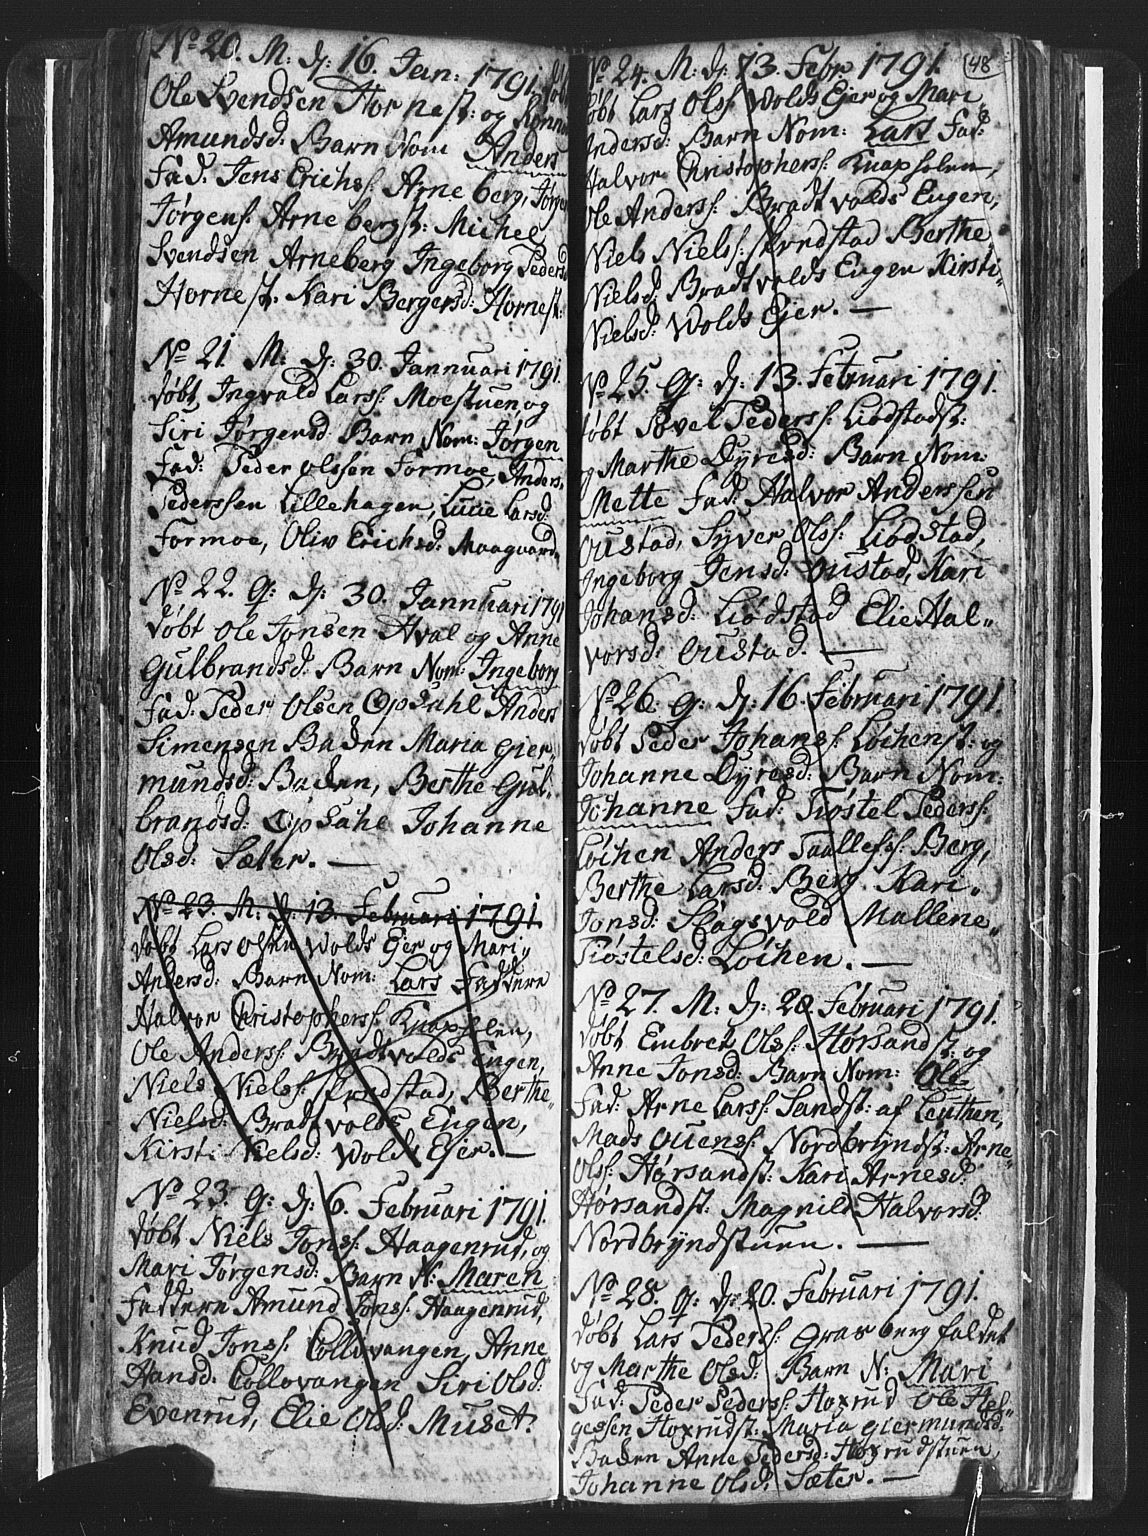 No 20. M. d: 16. Jan: 1791. døbt
Ole Svendsen Hornest: og Rønnu
Amundsd: Barn Nom Anders
Fad: Jens Erichs: Arneberg, Jørgen
Jørgens: Arnebergst: Michel
Svendsen Arneberg Ingeborg Pedersd
Hornest. Kari Bergersd: Hornest:
No 21. M: d: 30. Jannuari 1791.
døbt Ingvald Larss: Moestuen og
Siri Jørgensd Barn Nom: Jørgen
Fad: Peder Olssen Formoe, Anders
Pederssen Lillehagen, Lucie Larsd:
Formoe, Oliv Erichsd: Maagaard
No 22. q: d: 30. Jannuari 1791
døbt Ole Jonsen Hval og Anne
Gulbrandsd: Barn Nom: Ingeborg
Fad: Peder Olsen Opsahl Anders
Simensen Baden Maria Gier„
mundsd: Baden, Berthe Gul„
brandsd: Opsahl Johanne
Olsd: Sæter. —
No 23. M: d: 13. Februari 1791.
døbt Lars Olsen Wolds Ejer og Mari„
Andersd: Barn Nom: Lars Faddere
Halvor Christophers: Knapholen,
Ole Anderss: Bradtvolds Eugen,
Niels Nielss: Arndstad, Berthe„
Nielsd: Bradtvolds Eugen,
Kirsti Nielsd: Wolds Ejer. —
No 23. q: d: 6. Februari 1791.
døbt Niels Jonss: Haagenrud, og
Mari Jørgensd: Barn N: Maren
Faddere Amund Jonss: Haagenrud,
Knud Jonss: Collovangen, Anne
Hansd: Collovangen Siri Olsd:
Evenrud, Elie Olsd: Muset.
48
No 24. M: d: 13. Febr. 1791.
døbt Lars Olss: Wolds Ejer og Mari
Andersd: Barn Nom: Lars Fad:
Halvor Christophers: Knapholen,
Ole Anderss: Bradtvolds Eugen,
Niels Nielss: Arndstad Berthe
Nielsd: Bradtvolds Eugen Kirsti„
Nielsd: Wolds Ejer. —
No 25. q: d: 13. Februari 1791.
døbt Povel Pederss: Liødstadst:
og Marthe Dyresd: Barn Nom:
Mette Fad: Halvor Anderssen
Oustad, Syver Olss: Liødstad,
Ingeborg Jensd: Oustad, Kari
Johansd: Liødstad Elie Hal„
vorsd: Oustad. —
No 26. q: d: 16. Februari 1791.
døbt Peder Johanss: Løchenst: og
Johanne Dyresd: Barn Nom:
Johanne Fad: Tiøstel Pederss:
Løchen Anders Taallefss: Berg,
Berthe Larsd: Berg. Kari„
Jonsd: Slagsvold Mallene„
Tiøstelsd: Løchen. —
No 27. M. d: 20. Februari 1791.
døbt Embret Olss: Hørsandst: og
Anne Jonsd: Barn Nom: Ole
Fad: Arne Larss: Sandst: af Leuthen,
Mads Ouenss: Nordbryndst: Arne„
Olss: Hørsandst: Kari Arnesd:
Hørsandst: Magnild Halvorsd:
Nordbryndstuen. —
No 28. q: d: 20. Februari 1791.
døbt Lars Pederss: Grasberg faldet
og Marthe Olsd: Barn N: Mari
Fad: Peder Pederss: Hoxrud Ole Hel„
gessen Hoxrudst: Maria Giermundsd:
Baden Anne Pedersd: Hoxrudstuen,
Johanne Olsd: Sæter. —